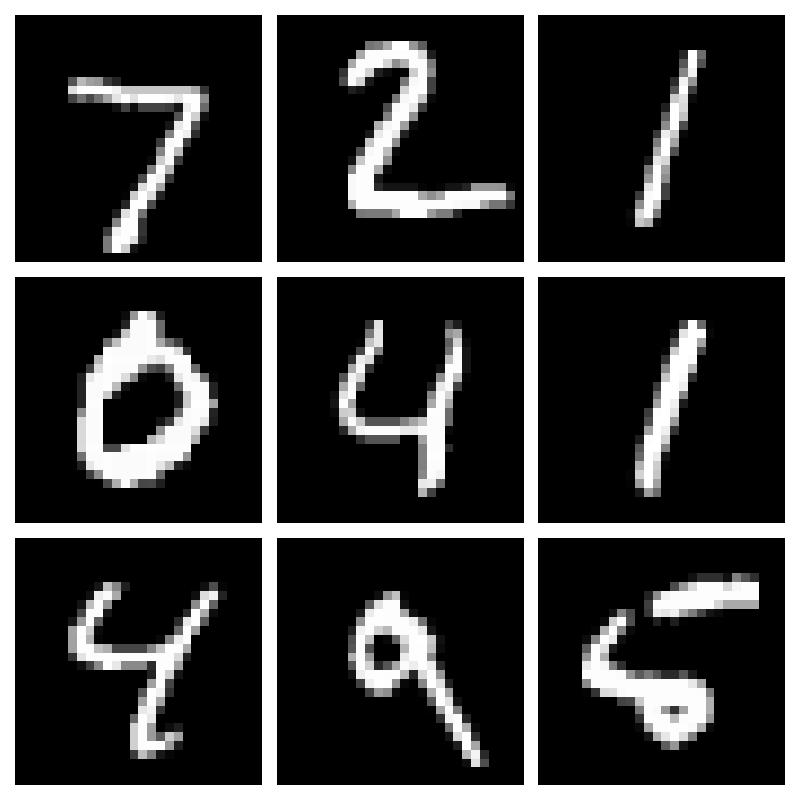 7 2 1
0 4 1
4 9 5